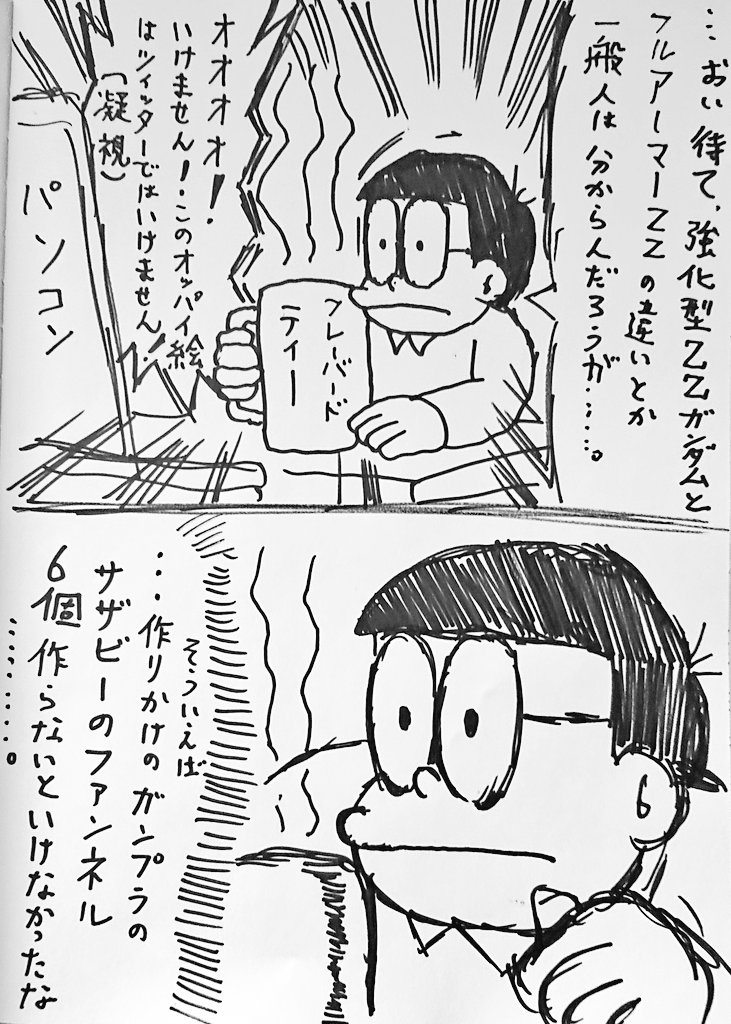 …おい待て、強化型ZZガンダムと
フルアーマーZZの違いとか
一般人は分からんだろうが……。
オオオオ!
いけません!このオッパイ絵
はツイッターではいけません!
(凝視)
フレーバード
ティー
パソコン
そういえば
…作りかけのガンプラの
サザビーのファンネル
6個作らないといけなかったな
………。